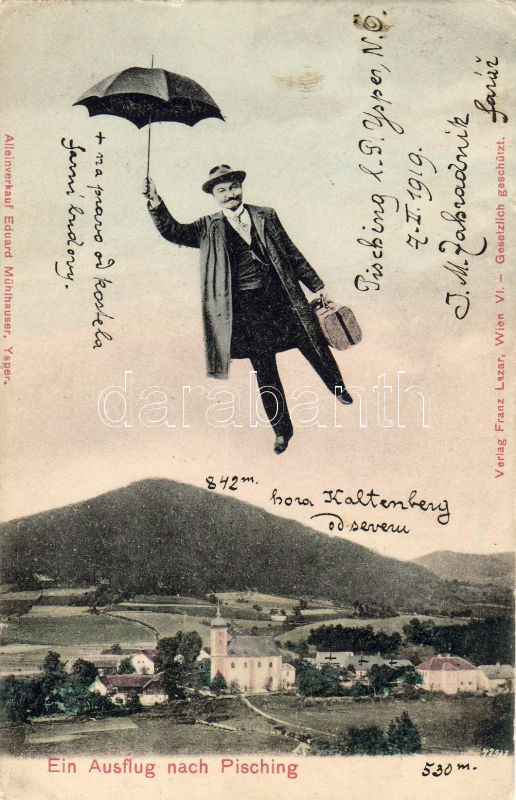 Pisching l. P. Ysper, N.Ö.
7-II 1919.
J. M. Zahradník
farář
+ na pravo od kostela
farní budovy.
Alleinverkauf Eduard Mühlhauser, Ysper.
Verlag Franz Lazar, Wien VI. – Gesetzlich geschützt.
darabanth
842 m.
hora Kaltenberg
od severu
Ein Ausflug nach Pisching
530 m